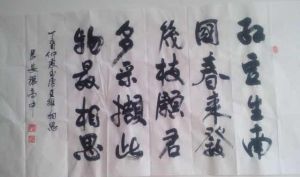 红豆生南
國春来發
幾枝願君
多采擷此
物最相思
丁酉仲夏录唐王维相思